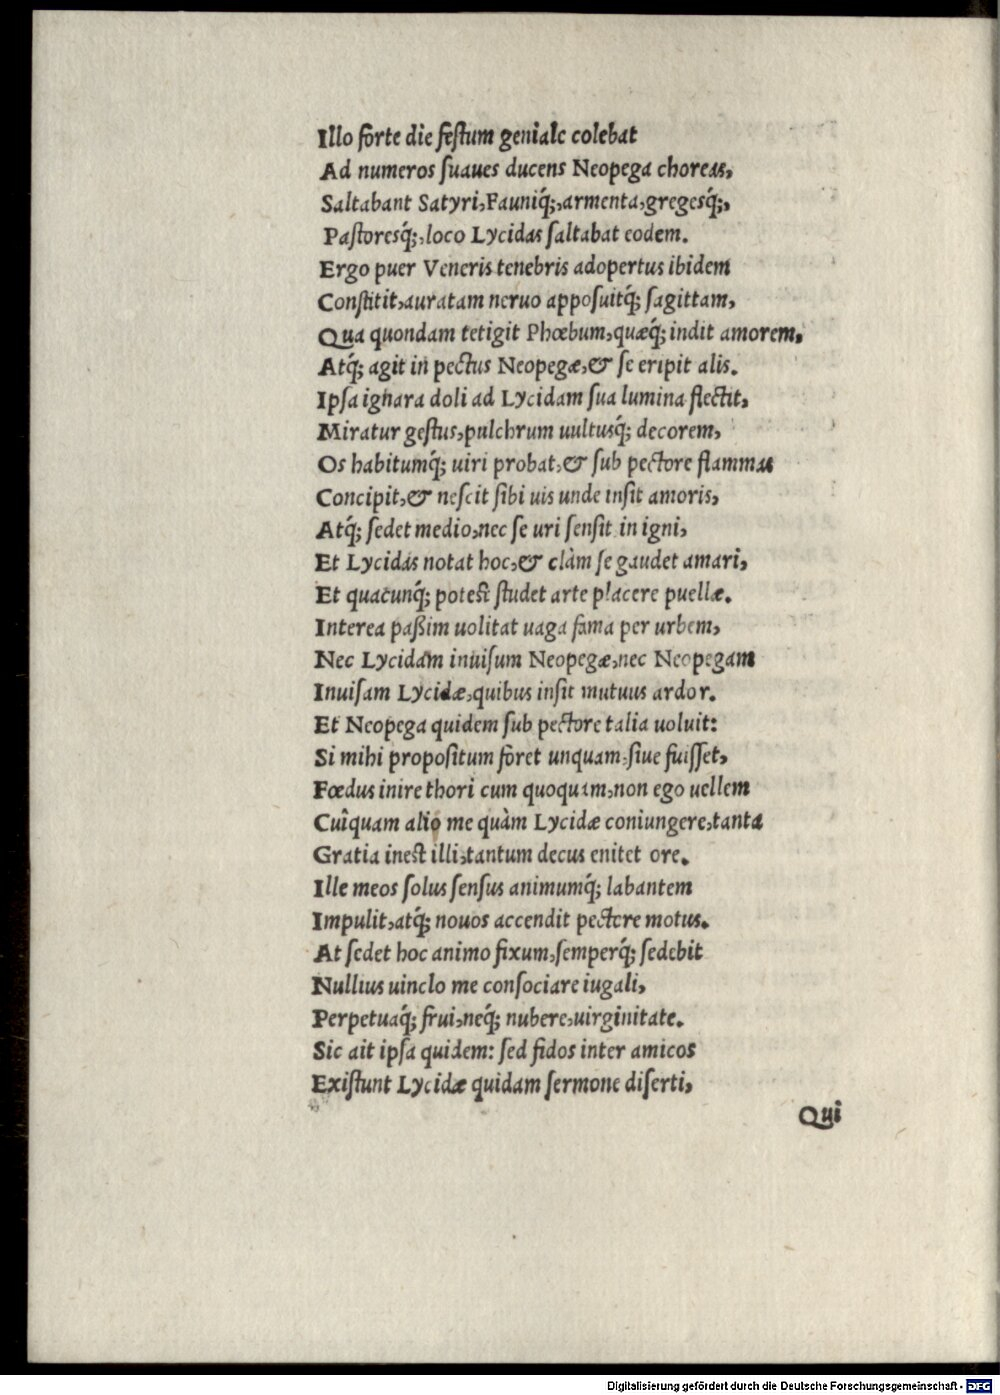 Illo forte die feſtum geniale colebat
Ad numeros ſuaues ducens Neopega choreas,
Saltabant Satyri, Fauniq́;, armenta, gregesq́;,
Paſtoresq́;, loco Lycidas ſaltabat eodem.
Ergo puer Veneris tenebris adopertus ibidem
Conſtitit, auratam neruo appoſuitq́; ſagittam,
Qua quondam tetigit Phœbum, quæq́; indit amorem,
Atq́; agit in pectus Neopegæ, & ſe eripit alis.
Ipſa ignara doli ad Lycidam ſua lumina flectit,
Miratur geſtus, pulchrum uultusq́; decorem,
Os habitumq́; uiri probat, & ſub pectore flammas
Concipit, & neſcit ſibi uis unde inſit amoris,
Atq́; ſedet medio, nec ſe uri ſenſit in igni,
Et Lycidas notat hoc, & clàm ſe gaudet amari,
Et quacunq́; poteſt ſtudet arte placere puellæ.
Interea paßim uolitat uaga fama per urbem,
Nec Lycidam inuiſum Neopegæ, nec Neopegam
Inuiſam Lycidæ, quibus inſit mutuus ardor.
Et Neopega quidem ſub pectore talia uoluit:
Si mihi propoſitum foret unquam, ſiue fuiſſet,
Fœdus inire thori cum quoquam, non ego uellem
Cuîquam alio me quàm Lycidæ coniungere, tanta
Gratia ineſt illi, tantum decus enitet ore.
Ille meos ſolus ſenſus animumq́; labantem
Impulit, atq́; nouos accendit pectore motus.
At ſedet hoc animo fixum, ſemperq́; ſedebit
Nullius uinclo me conſociare iugali,
Perpetuaq́; frui, neq́; nubere, uirginitate.
Sic ait ipſa quidem: ſed fidos inter amicos
Exiſtunt Lycidæ quidam ſermone diſerti,
Qui
Digitalisierung gefördert durch die Deutsche Forschungsgemeinschaft - DFG